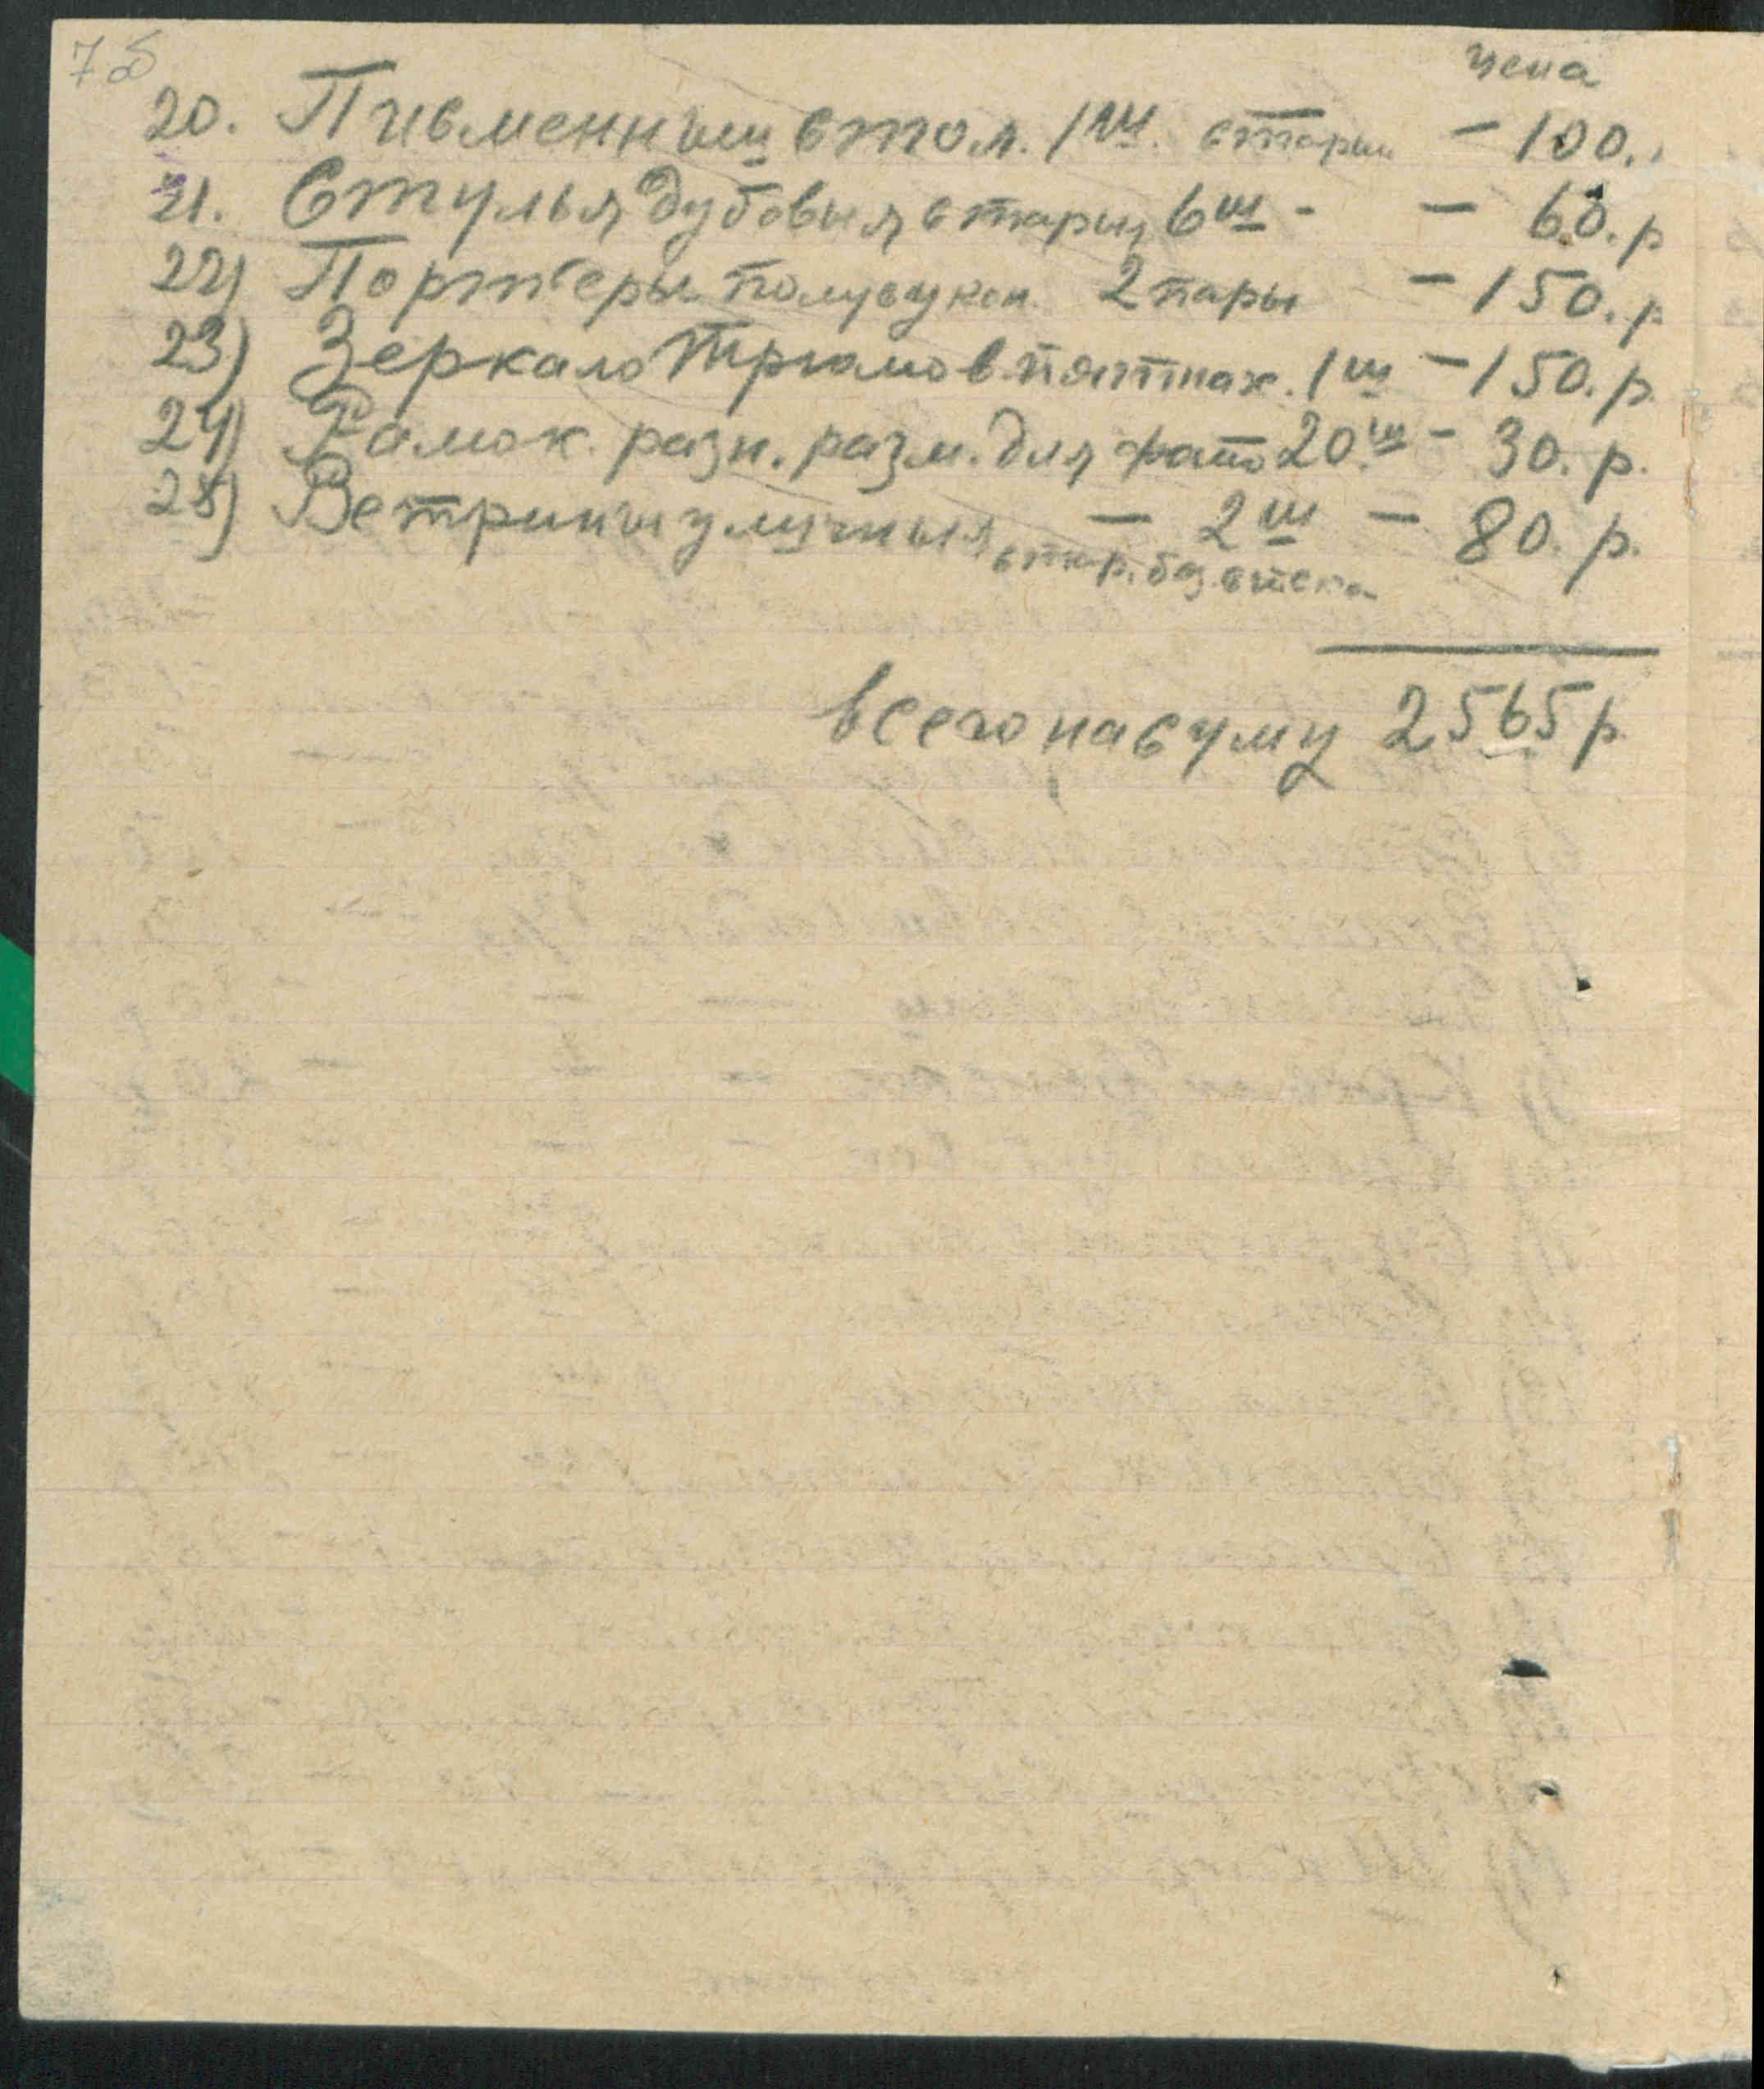 7б
цена
20. Писменныи стол. 1 ш. стары — 100.
21. Стулья дубовыя стары 6 ш - — 60. р
22) Портъеры полусукон. 2 пары — 150. р
23) Зеркало трюмо в пятнах. 1 ш — 150. р.
24) Рамок. разн. разм. для фато 20 ш — 30. р.
25) Ветрины уличныя — 2 ш — 80. р.
стар. без стекла
всего на суму 2565 р.